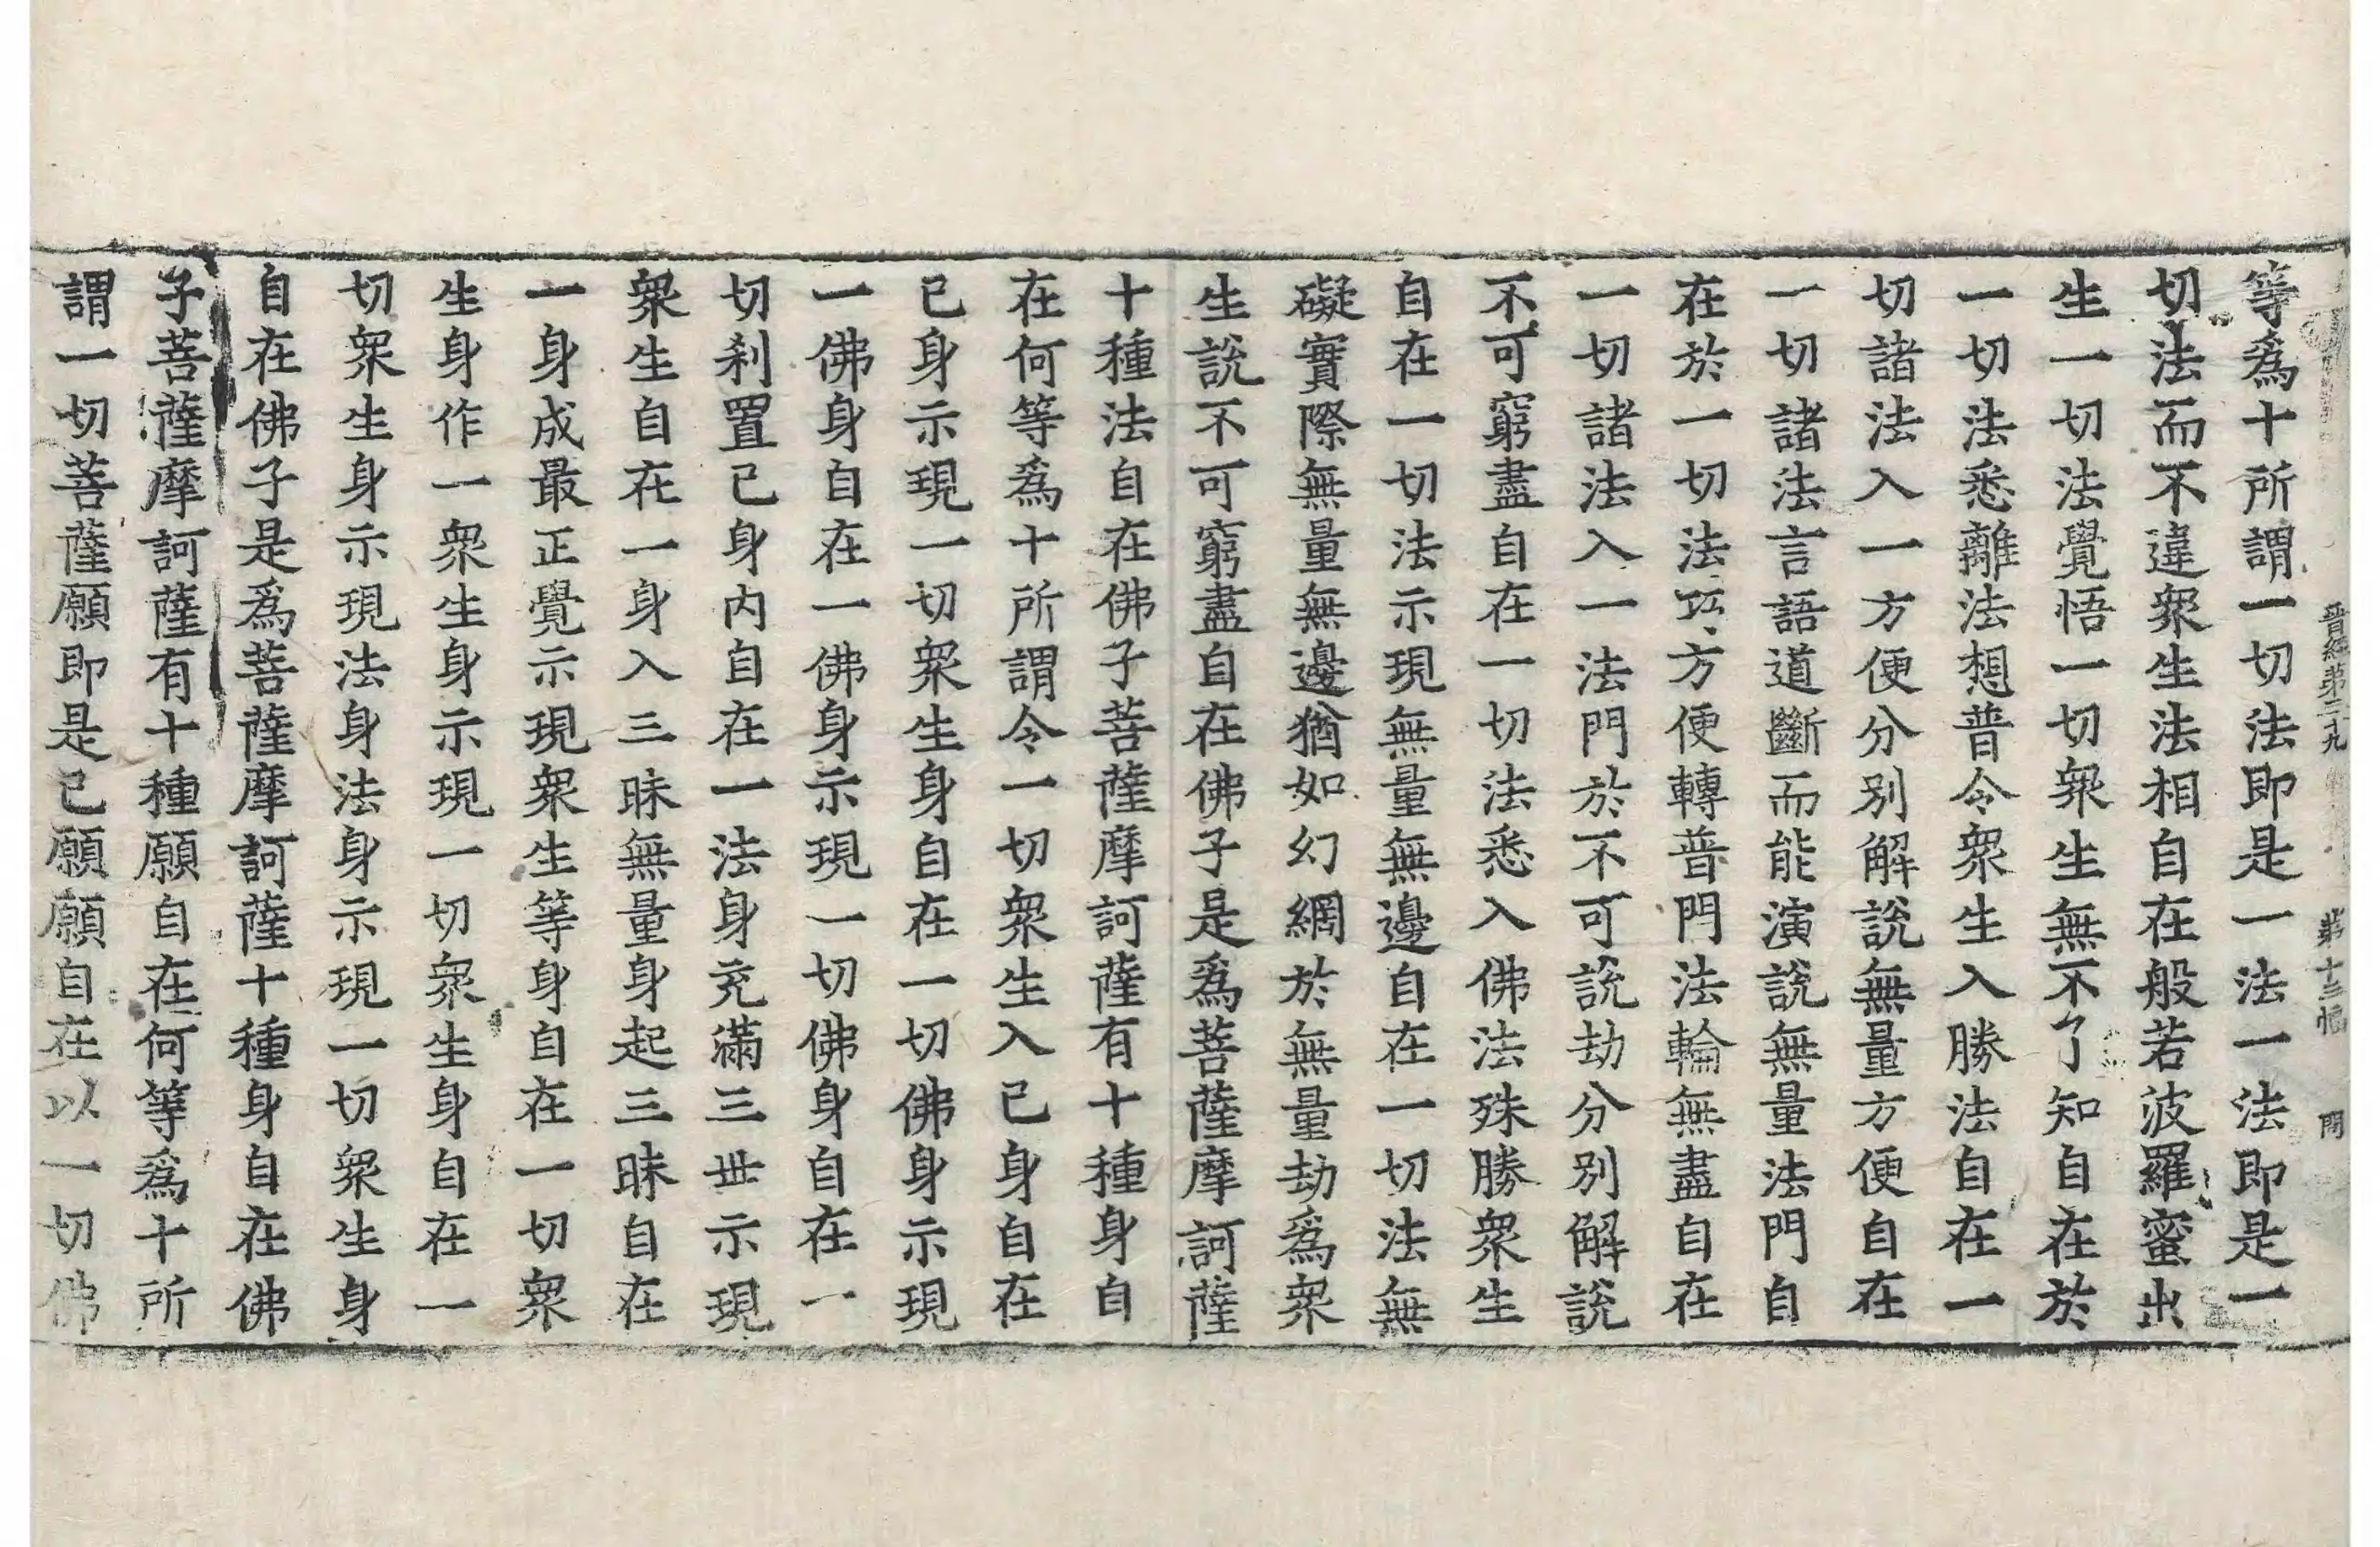 晋經第三九 第十三幅 開
等爲十所謂一切法即是一法一法即是一
切法而不違衆生法相自在般若波羅蜜出
生一切法覺悟一切衆生無不了知自在於
一切法悉離法想普令衆生入勝法自在一
切諸法入一方便分别解說無量方便自在
一切諸法言語道斷而能演說無量法門自
在於一切法巧方便轉普門法輪無盡自在
一切諸法入一法門於不可説劫分別解說
不可窮盡自在一切法悉入佛法殊勝衆生
自在一切法示現無量無邊自在一切法無
礙實際無量無邊猶如幻網於無量劫爲衆
生說不可窮盡自在佛子是爲菩薩摩訶薩
十種法自在佛子菩薩摩訶薩有十種身自
在何等爲十所謂令一切衆生入己身自在
己身示現一切衆生身自在一切佛身示現
一佛身自在一佛身示現一切佛身自在一
切刹置己身内自在一法身充滿三世示現
衆生自在一身入三昧無量身起三昧自在
一身成最正覺示現衆生等身自在一切衆
生身作一衆生身示現一切衆生身自在一
切衆生身示現法身法身示現一切衆生身
自在佛子是爲菩薩摩訶薩十種身自在佛
子菩薩摩訶薩有十種願自在何等爲十所
謂一切菩薩願即是己願願自在以一切佛